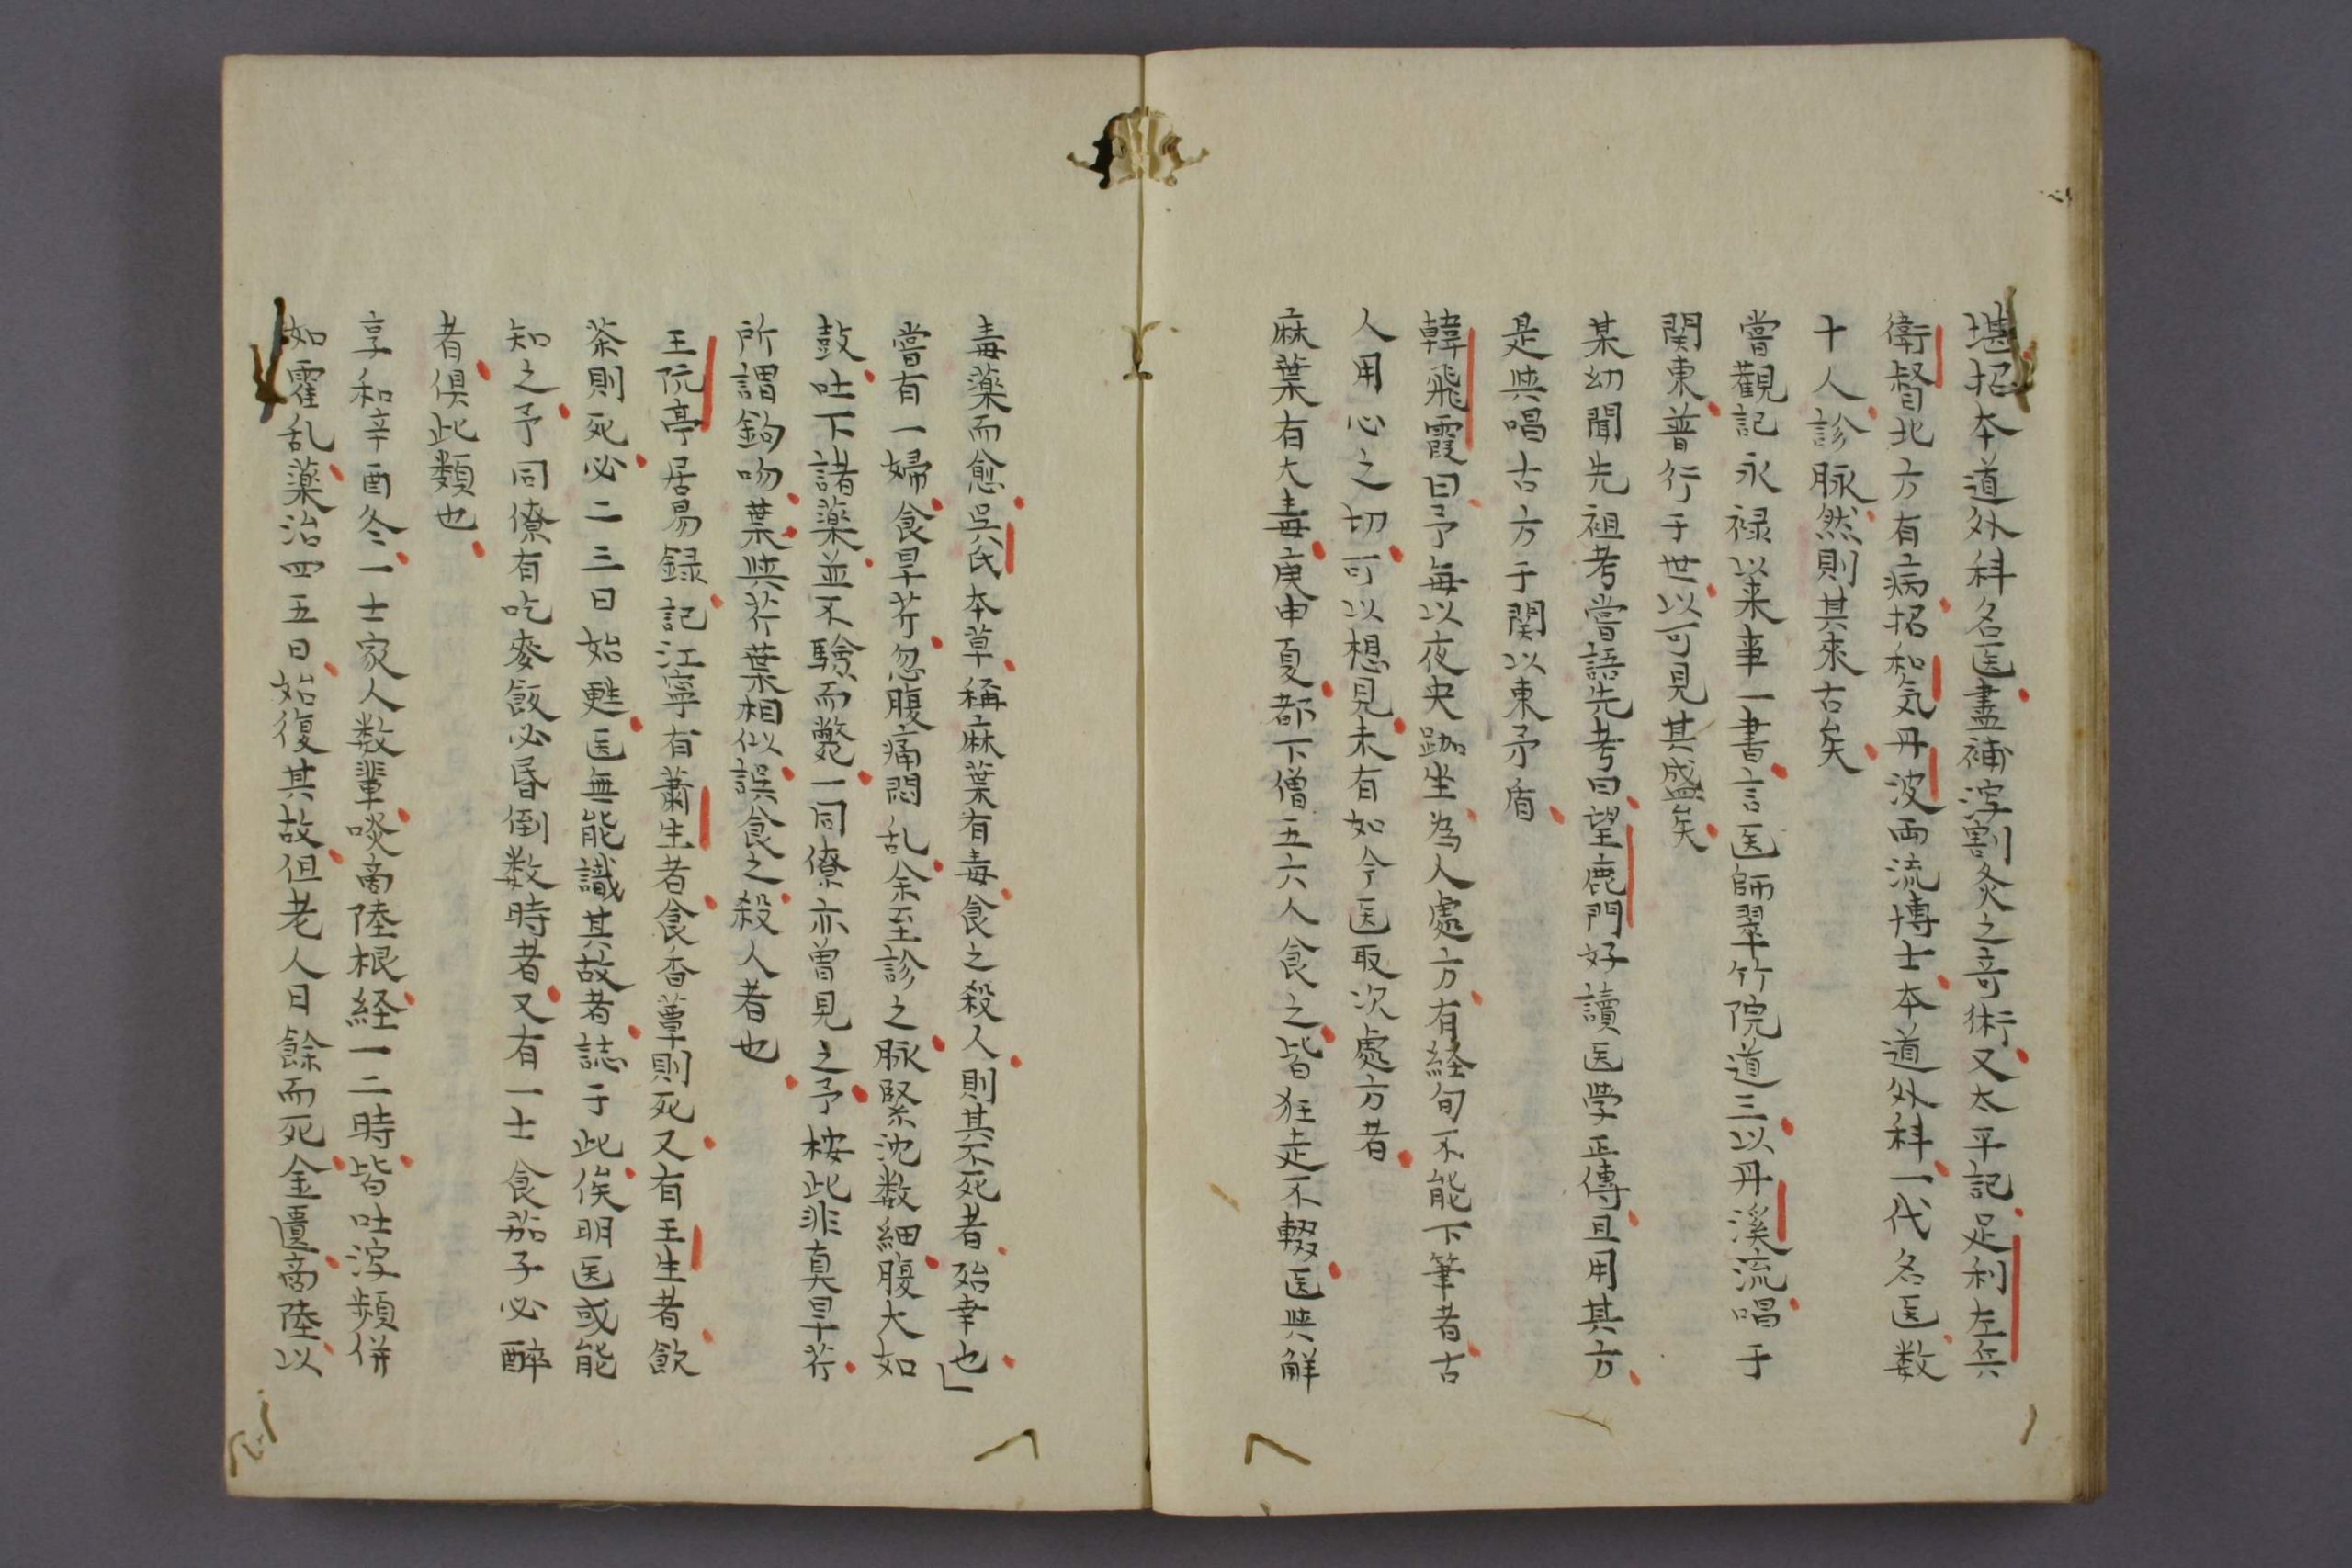 堪招本道外科名医盡補瀉割灸之竒術又太平記足利左兵
衛督北方有病招和気丹波両流博士本道外科一代名医数
十人診脉然則其来古矣
嘗觀記永禄以来事一書言医師翠竹院道三以丹溪流唱于
関東普行于世以可見其盛矣
某幼聞先祖考嘗語先考曰望鹿門好讀医学正傳且用其方
是與唱古方于関以東矛盾
韓飛霞曰予每以夜央跏坐為人處方有経旬不能下筆者古
人用心之切可以想見未有如今医取次處方者
麻葉有大毒庚申夏都下僧五六人食之皆狂走不輟医與解
毒薬而愈呉氏本草稱麻葉有毒食之殺人則其不死者殆幸也
嘗有一婦食旱芹忽腹痛悶乱余至診之脉緊沈数細腹大如
鼓吐下諸薬並不驗而斃一同僚亦曽見之予桉此非真旱芹
所謂鉤吻葉與芹葉相似誤食之殺人者也
王阮亭居易録記江寧有蕭生者食香蕈則死又有王生者飲
茶則死必二三日始甦医無能識其故者誌于此俟明医或能
知之予同僚有吃麥飯必昏倒数時者又有一士食茄子必醉
者倶此類也
享和辛酉冬一士家人数輩啖商陸根経一二時皆吐瀉頻併
如霍乱薬治四五日始復其故但老人日餘而死金匱商陸以